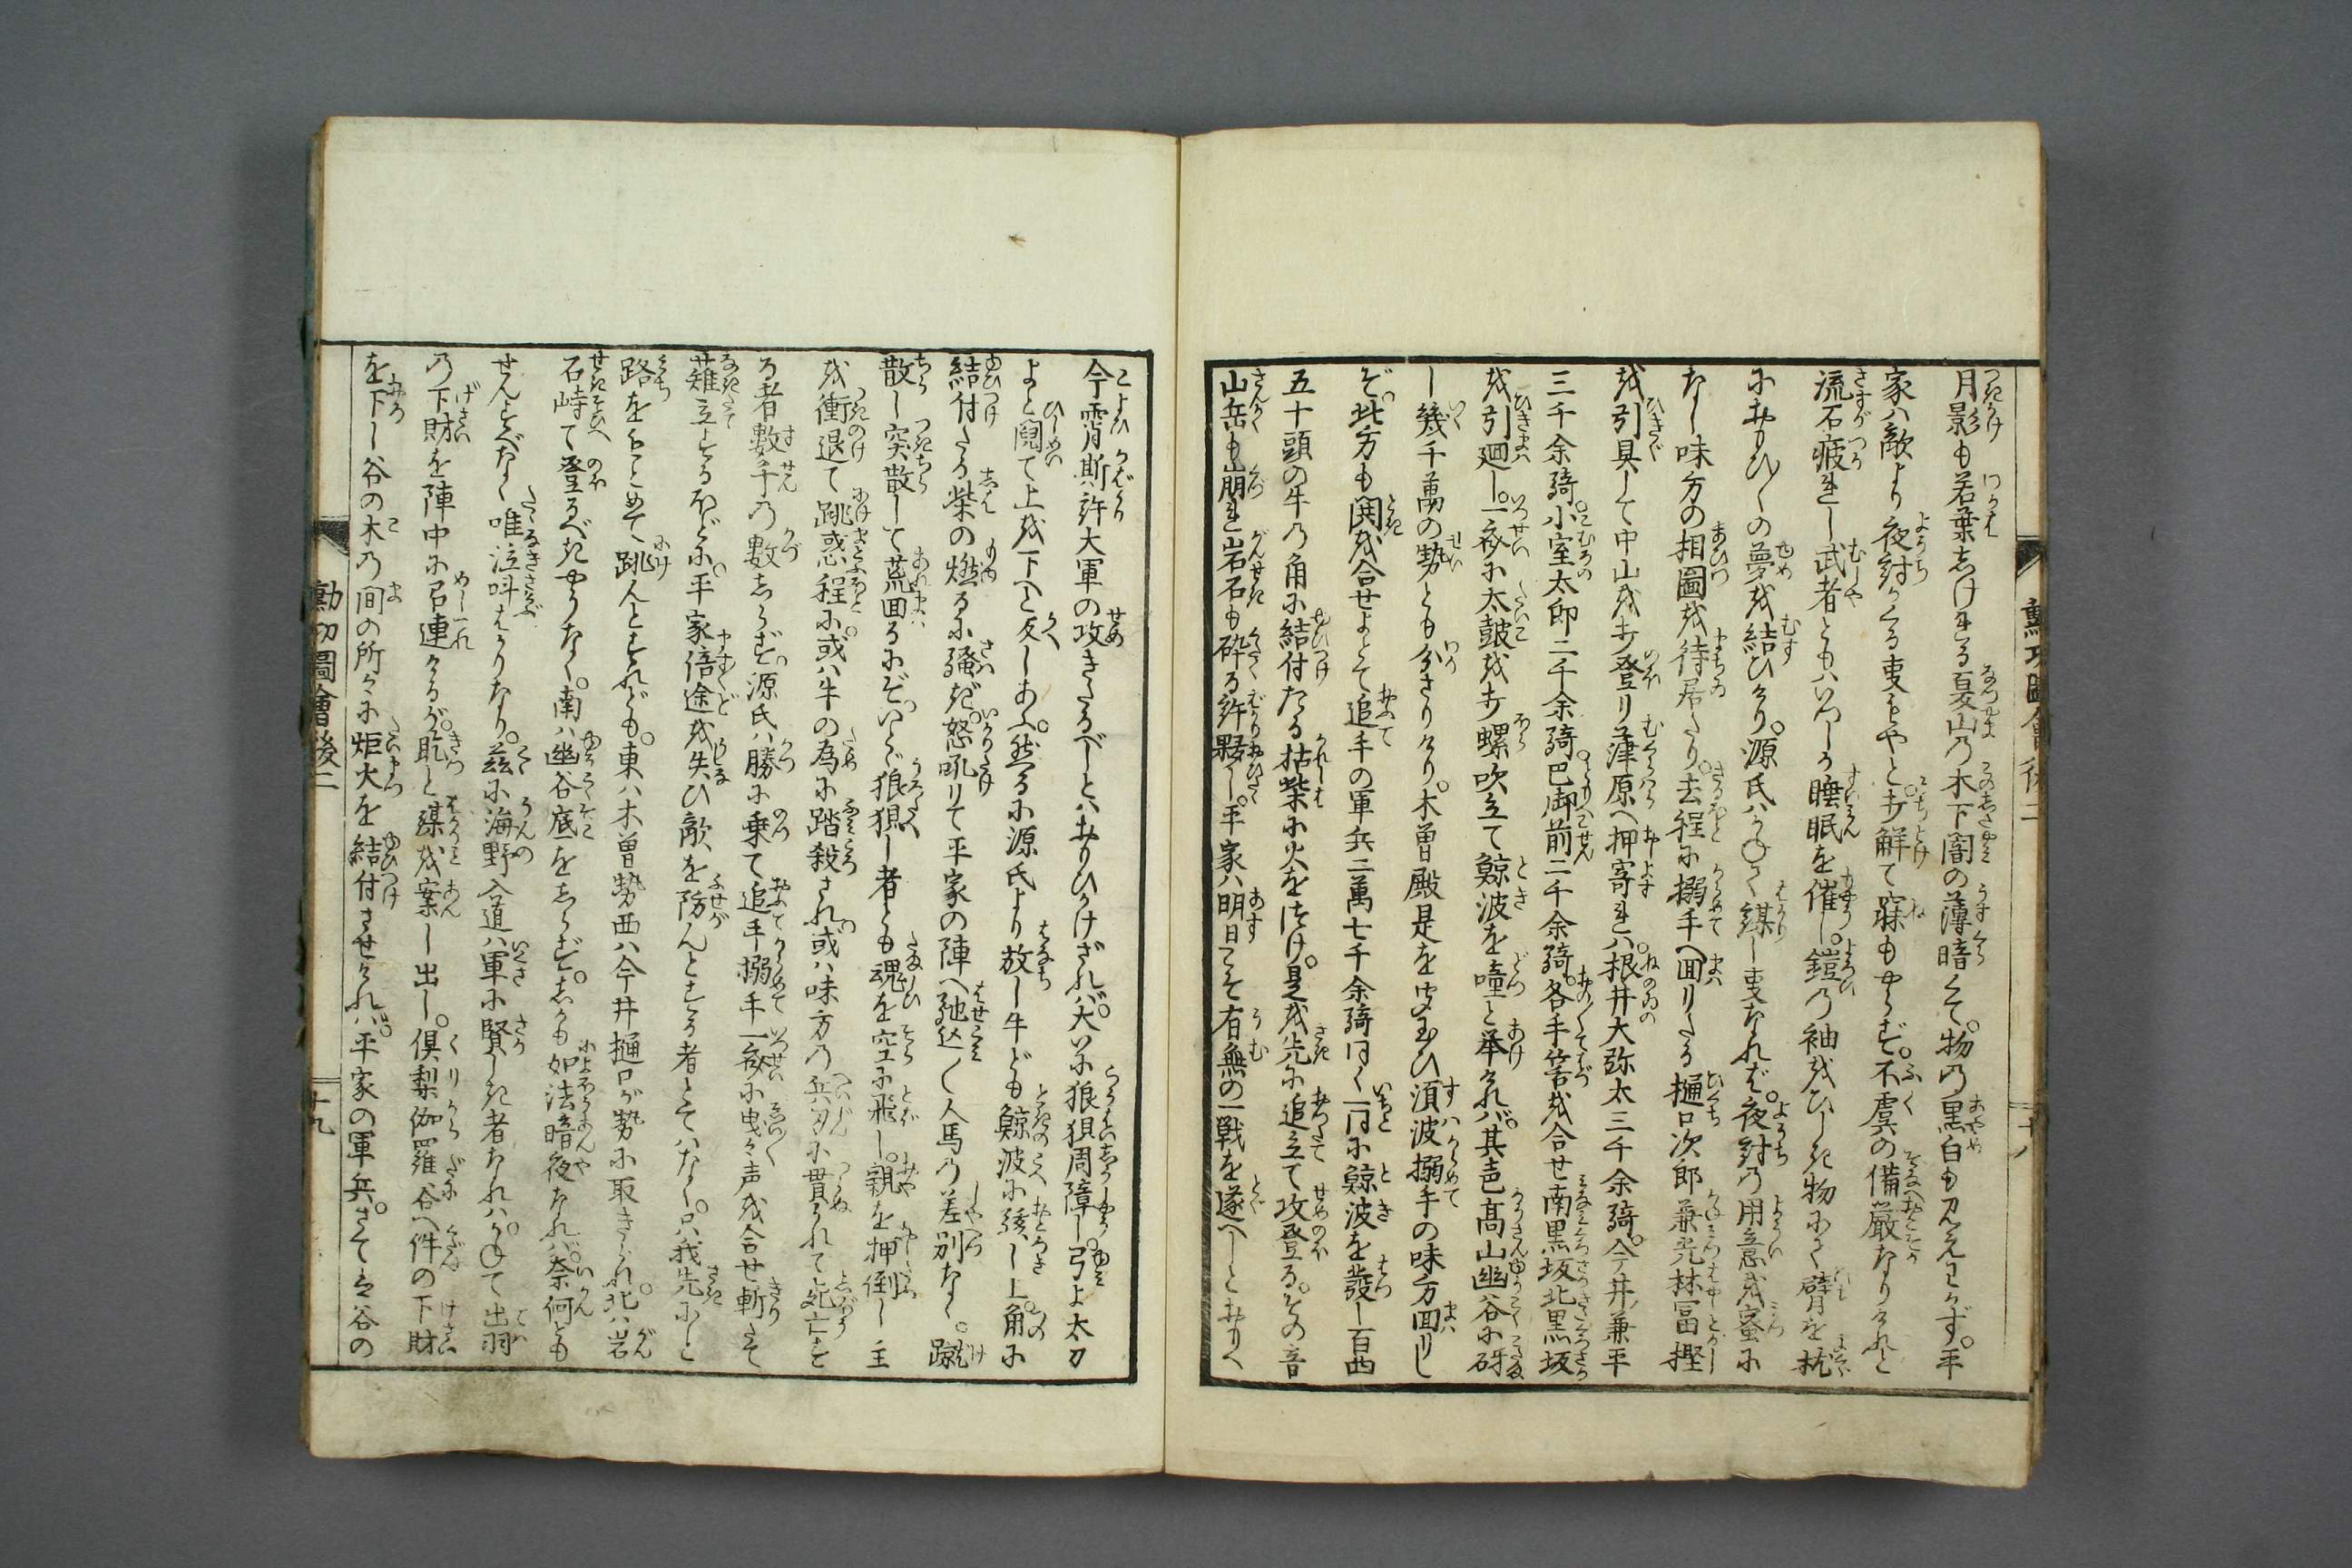 月影も若葉しける夏山乃木下闇の薄暗くて。物乃黒白も見えわかず。平
家ハ敵より夜討かくる事もやと。打解て寐もやらず。不虞の備厳なりけれど
流石疲れし武者どもハいつしか睡眠を催し。鎧乃袖を ひしき物にて臂を枕
におひ〳〵の夢を結びけり。源氏ハかねて謀し事なれバ。夜討乃用意を密に
なし味方の相圖を待居たり。去程に搦手へ回りたる樋口次郎兼光林冨樫
を引具して中山を打登り葎原へ押寄れハ。根井大弥太三千余騎。今井兼平
三千余騎。小室太郎二千余騎。巴御前二千余騎。各手筈を合せ南黒坂北黒坂
を引廻し。一斉に太皷を打螺吹立て鯨波を噇と挙けれバ。其声高山幽谷に砑
し幾千萬の勢とも分ざりけり。木曽殿是を聞玉ひ須波搦手の味方回りし
ぞ。此方も鬨を合せよとて追手の軍兵二萬七千余騎同く一同に鯨波を發し四五
五十頭の牛乃角に結付たる枯柴に火をつけ。是を先に追立て攻登る。その音
山岳も崩れ岩石も砕る許夥し。平家ハ明日こそ有無の一戦を遂べしとおもへ
勳功圖會後二
十八
今霄斯許大軍の攻きたるべしとハおもひかけざれバ。大いに狼狽周障し。弓よ太刀
よと鬩て上を下へと反しあふ。然るに源氏より放し牛ども鯨波に駭し上。角に
結付たる柴の燃るに騒ぎ。怒吼りて平家の陣へ馳込〳〵人馬乃差別なく。蹴
散し突散して荒回るにぞ。いとゞ狼狽し者ども魂を空に飛し。親を押倒し主
を衝退て跳惑程に。或ハ牛の為に踏殺され或ハ味方乃兵刃に貫かれて死亡を
る者數千乃數しらず。源氏ハ勝に乗て追手搦手一斉に曳々声を合せ斬たて
薙立するほどに。平家倍途を失ひ敵を防んとする者とてハなく。只我先にと
路をもとめて跳んとすれども。東ハ木曽勢西ハ今井樋口が勢に取きられ。北ハ岩
石峙て登るべきやうなく。南ハ幽谷底をしらず。しかも如法暗夜なれバ。奈何とも
せんすべなく唯泣叫ばかりなり。茲に海野入道ハ軍に賢しき者なれハ。かねて出羽
乃下財を陣中に召連けるが。屹と謀を案し出し。倶梨伽羅谷へ件の下財
を下し谷の木乃間の所々に炬火を結付させけれバ。平家の軍兵。さてハ谷の
勳功圖會後二
十九